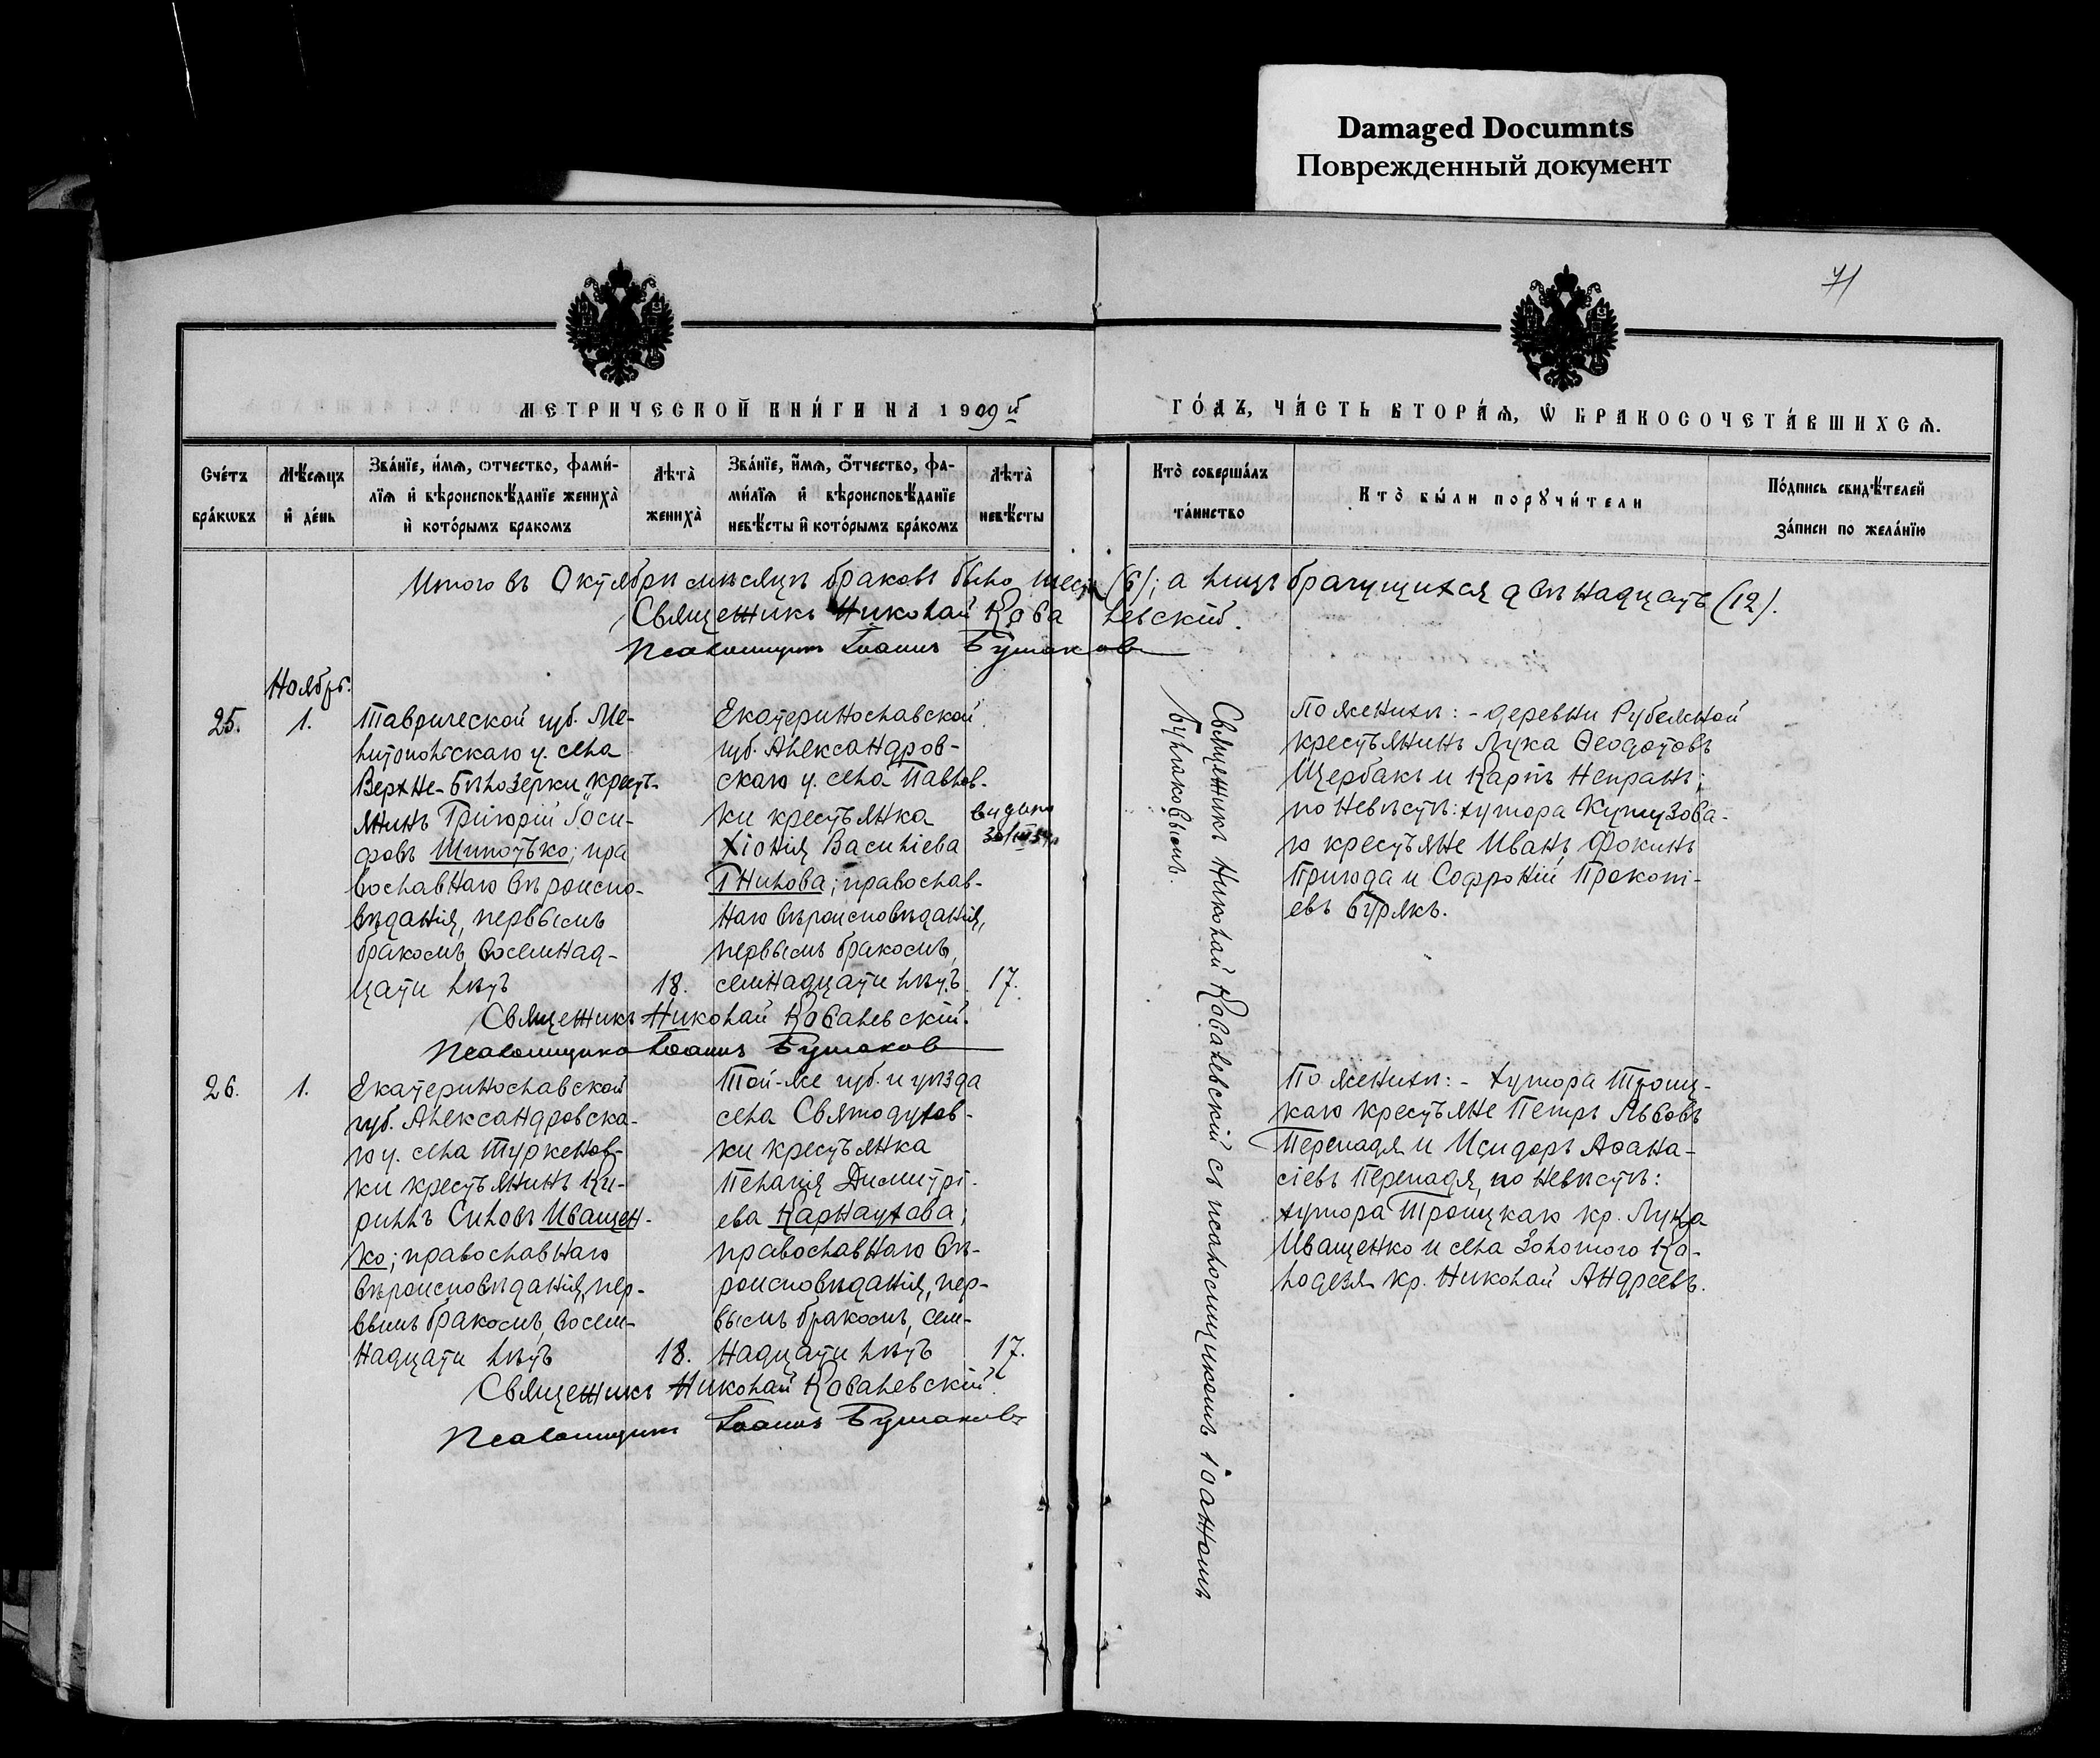 Damaged Documnts
Поврежденный документ
71
МЕТРИЧЕСКОЙ КНИ́ГИ НА 1909й
ГО́ДЪ, ЧА́СТЬ ВТОРА́Ѧ, Ѡ҆ БРАКОСОЧЕТА́ВШИХСѦ.
Сче́тъ
бра́кѡвъ
Мѣ́сѧцъ
и҆ де́нь
Зва́нїе, и҆́мѧ, ѻтчество, фами́-
лїѧ и҆ вѣроисповѣ́данїе жениха̀
и҆ кото́рымъ бракомъ
Лѣта̀
жениха̀
Зва́нїе, и҆́мѧ, ѻ҆́тчество, фа-
ми́лїѧ и҆ вѣроисповѣ́данїе
невѣ́сты и҆ кото́рымъ бра́комъ
Лѣта̀
невѣ́сты
Кто̀ соверша́лъ
та́инство
Кто̀ бы́ли порꙋчи́тели
По́дпись свидѣ́телей
за́писи по жела́нїю
Итого въ Октябрѣ мѣсяцѣ браковъ было шесть (6); а лицъ брачущихся двѣнадцать (12).
Священникъ Николай Ковалевскій.
Псаломщикъ Іоаннъ Бушаковъ
Ноябрь.
25.
1.
Таврической губ. Ме-
литопольскаго у. села
Верхне-Бѣлозерки кресть-
янинъ Григорій Іоси-
фовъ Шипотько; пра
вославнаго вѣроиспо-
вѣданія, первымъ
бракомъ, восемнад-
цати лѣтъ
18.
Екатеринославской
губ. Александров-
скаго у. села Павлов-
ки крестьянка
Хіонія Васильева
Гнилова; православ-
наго вѣроисповѣданія,
первымъ бракомъ,
семнадцати лѣтъ
17.
видано
Священникъ Николай Ковалевскій.
Псаломщикъ Іоаннъ Бушаковъ
По женихѣ: - деревни Рубежной
крестьянинъ Лука Ѳеодотовъ
Щербакъ и Карпъ Непранъ;
по невѣстѣ: хутора Кутузова-
го крестьяне Иванъ Фокинъ
Пригода и Софроній Прокопі-
евъ Бурякъ.
Священникъ Николай Ковалевскій съ псаломщикомъ Іоанномъ
Бушаковымъ.
26.
1.
Екатеринославской
губ. Александровска-
го у. села Туркенов-
ки крестьянинъ Ки-
риллъ Силовъ Иващен-
ко; православнаго
вѣроисповѣданія, пер-
вымъ бракомъ, восем-
надцати лѣтъ
18.
Той-же губ. и уѣзда
села Святодухов-
ки крестьянка
Пелагія Димитрі-
ева Карнаухова;
православнаго вѣ-
роисповѣданія, пер-
вымъ бракомъ, сем-
надцати лѣтъ
17.
Священникъ Николай Ковалевскій.
Псаломщикъ Іоаннъ Бушаковъ
По женихѣ: - хутора Троиц-
каго крестьяне Петръ Львовъ
Перепадя и Исидоръ Аѳана-
сіевъ Перепадя, по невѣстѣ:
хутора Троицкаго кр. Лука
Иващенко и села Золотого Ко-
лодезя кр. Николай Андреевъ.